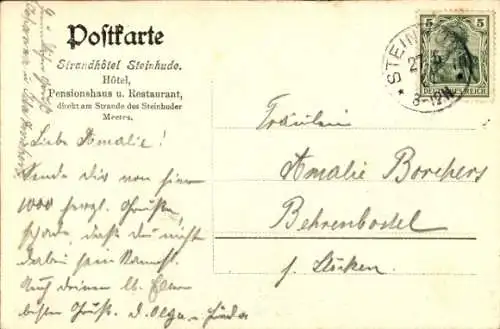 Postkarte
Strandhôtel Steinhude.
Hôtel,
Pensionshaus u. Restaurant,
direkt am Strande des Steinhuder
Meeres.
5 5
DEUTSCHES REICH
STEIN
27.5.
8-12 N.
Liebe Amalie!
Sende Dir von hier
1000 herzl. Grüße,
schade, daß du nicht
dabei sein kannst.
Auch deinen lb. Eltern
besten Gruß. d. Olga
Fräulein
Amalie Borchers
Behrenbostel